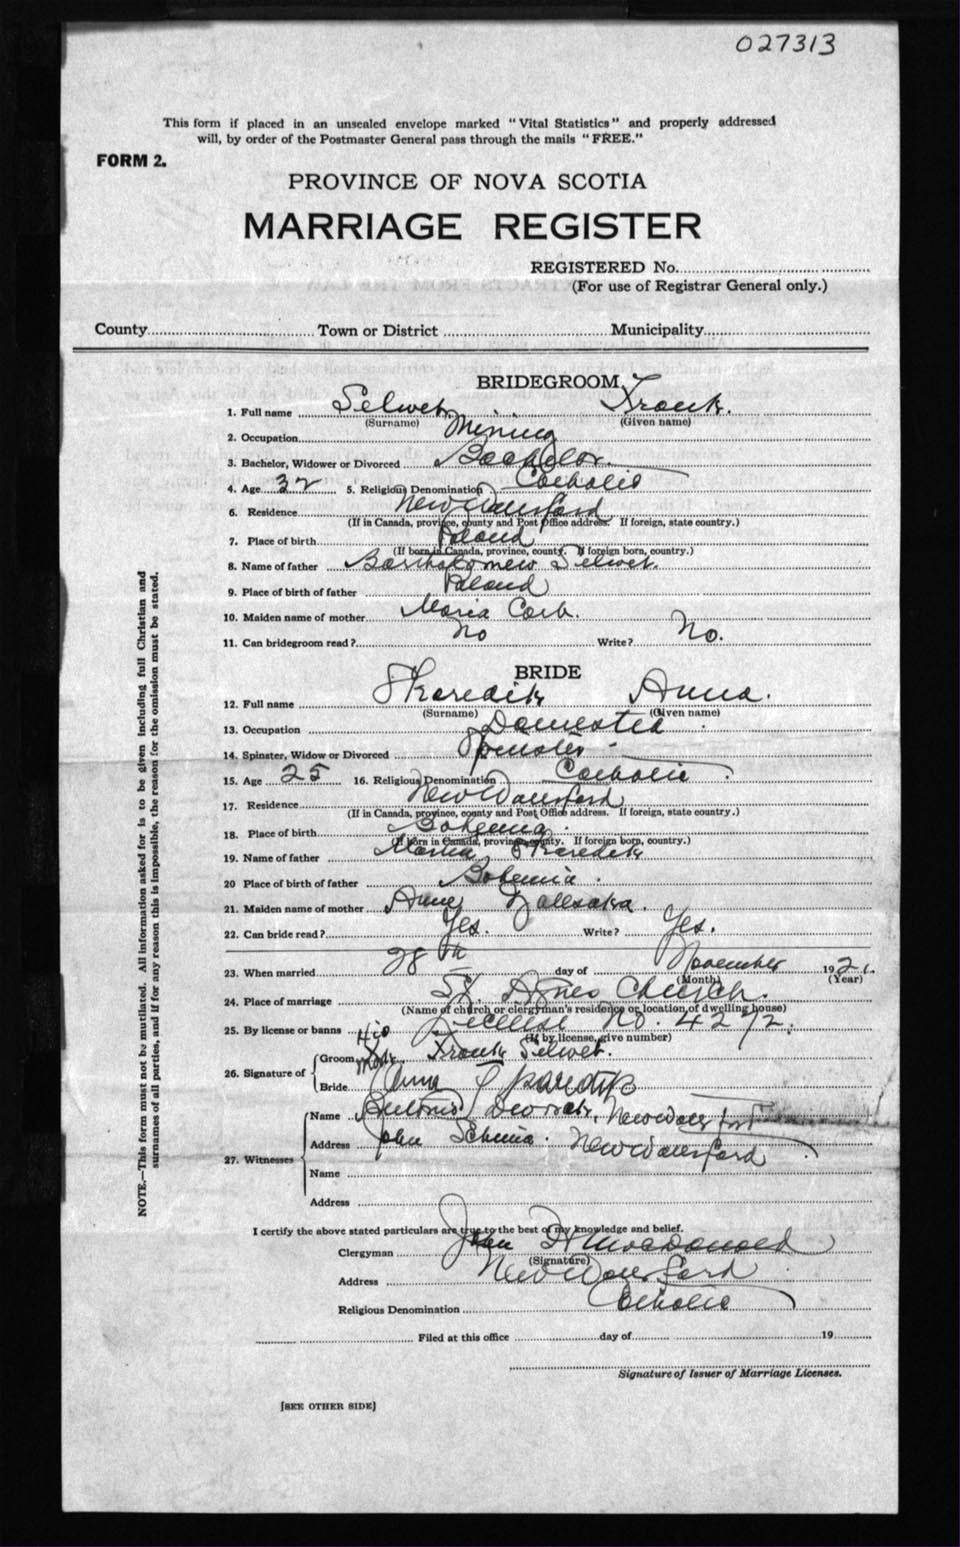 027313
This form if placed in an unsealed envelope marked "Vital Statistics" and properly addressed
will, by order of the Postmaster General pass through the mails "FREE."
FORM 2.
PROVINCE OF NOVA SCOTIA
MARRIAGE REGISTER
REGISTERED No.
(For use of Registrar General only.)
County Town or District Municipality
BRIDEGROOM
1. Full name Selwet Frank.
(Surname) (Given name)
2. Occupation Mining
3. Bachelor, Widower or Divorced Bachelor.
4. Age 32 5. Religious Denomination Catholic
6. Residence New Waterford
(If in Canada, province, county and Post Office address. If foreign, state country.)
7. Place of birth Poland
(If born in Canada, province, county. If foreign born, country.)
8. Name of father Bartholomew Selwet.
9. Place of birth of father Poland
10. Maiden name of mother Maria
11. Can bridegroom read? No Write? No.
BRIDE
12. Full name Anna.
(Surname) (Given name)
13. Occupation Domestic
14. Spinster, Widow or Divorced Spinster
15. Age 25 16. Religious Denomination Catholic
17. Residence New Waterford
(If in Canada, province, county and Post Office address. If foreign, state country.)
18. Place of birth Bohemia.
(If born in Canada, province, county. If foreign born, country.)
19. Name of father
20 Place of birth of father Bohemia.
21. Maiden name of mother
22. Can bride read? Yes. Write? Yes.
23. When married 28th day of November 192
(Month) (Year)
24. Place of marriage St. Agnes Church.
(Name of church or clergyman's residence or location of dwelling house)
25. By license or banns License No. 4272.
(If by license, give number)
26. Signature of
Groom His X Mark Frank Selwet.
Bride Anna
27. Witnesses
Name New Waterford
Address John New Waterford
Name
Address
I certify the above stated particulars are true to the best of my knowledge and belief.
Clergyman John H McDonald
(Signature)
Address New Waterford
Religious Denomination Catholic
Filed at this office day of 19
Signature of Issuer of Marriage Licenses.
[SEE OTHER SIDE]
NOTE.—This form must not be mutilated. All information asked for is to be given including full Christian and
surnames of all parties, and if for any reason this is impossible, the reason for the omission must be stated.